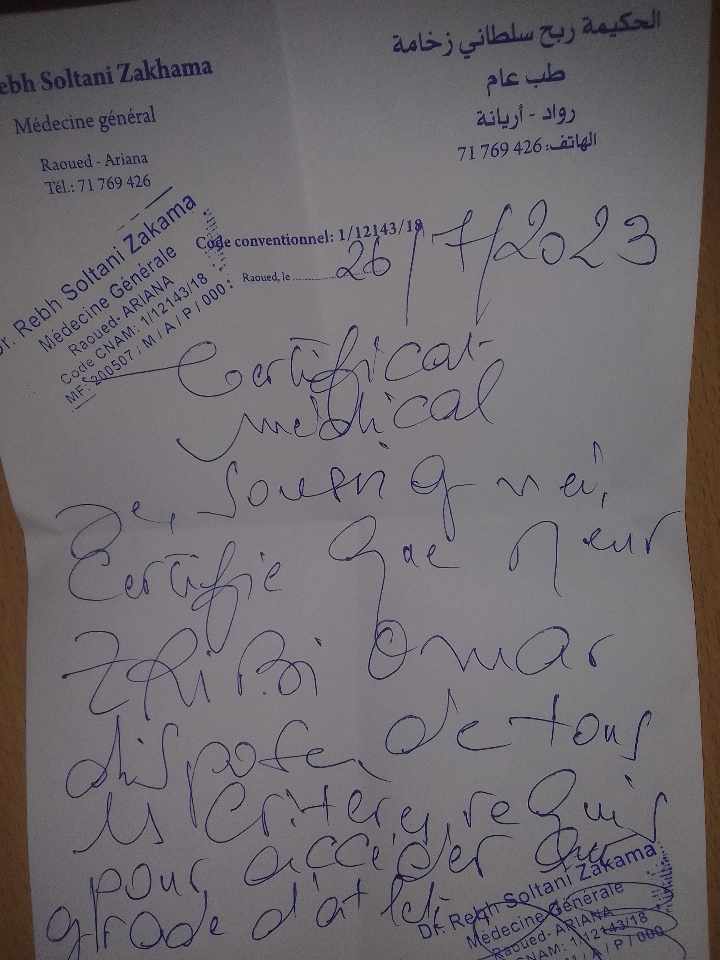 Rebh Soltani Zakhama
Médecine général
Raoued - Ariana
Tél.: 71 769 426
الحكيمة ربح سلطاني زخامة
طب عام
رواد - أريانة
الهاتف: 426 769 71
Dr. Rebh Soltani Zakama
Médecine Générale
Raoued- ARIANA
Code CNAM: 1/12143/18
MF: 200507 / M / A / P / 000
Code conventionnel: 1/12143/18
Raoued, le 26/7/2023
Certificat
médical
Je, soussigné,
Certifie que Mieur
ZRIBI Omar
dispose, de tous
les critères requis
pour accéder au
grade d'
Dr. Rebh Soltani Zakama
Médecine Générale
Raoued- ARIANA
CNAM: 1/12143/18
/ M / A / P / 000